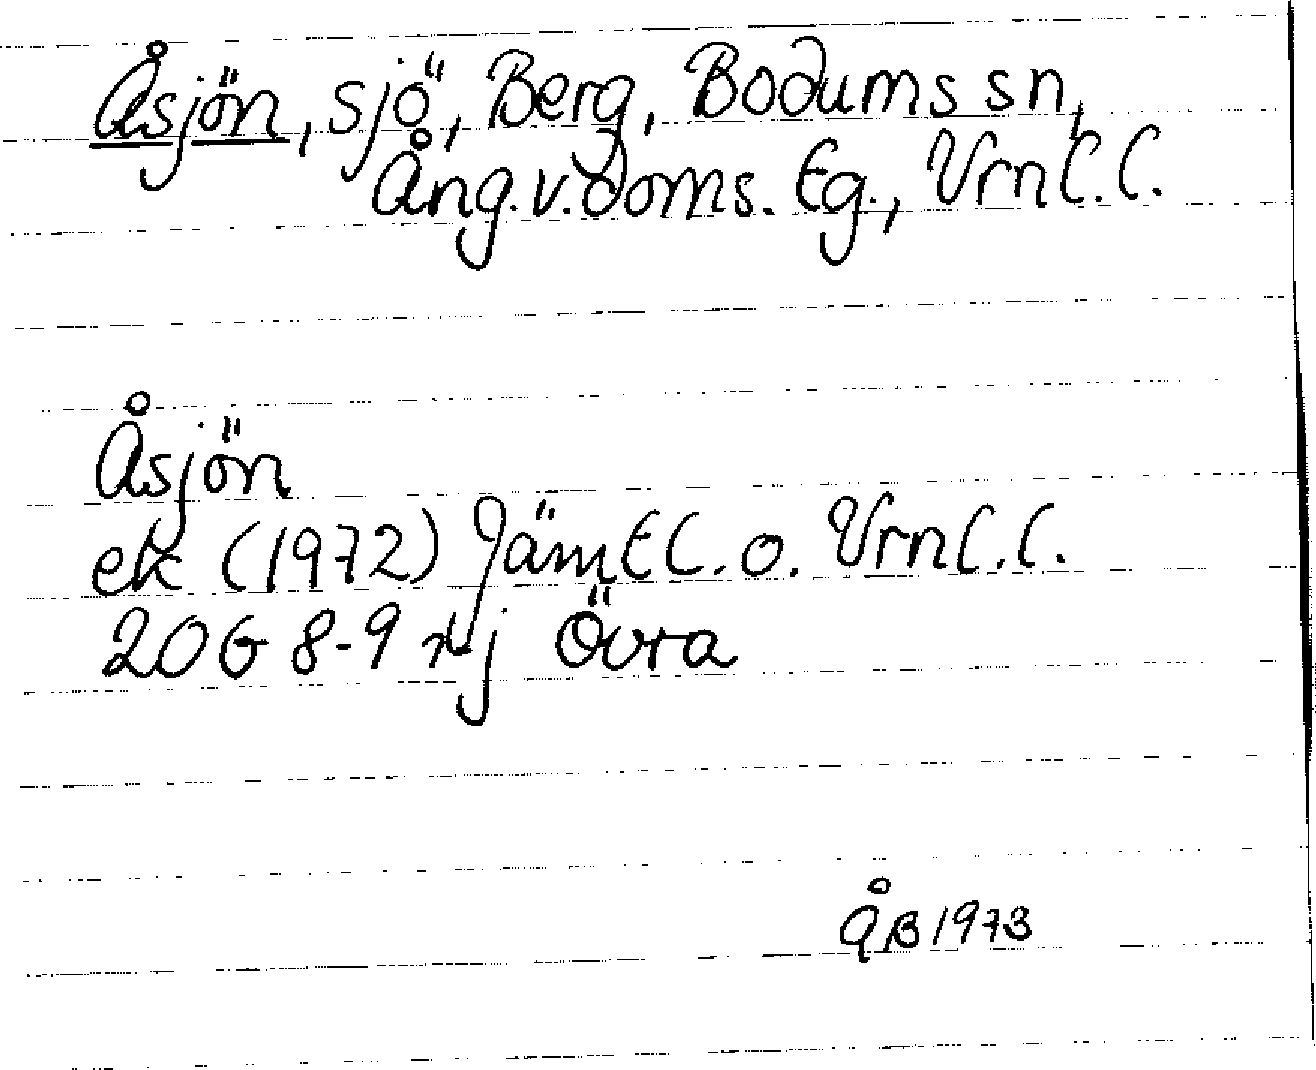 Åsjön, sjö, Berg, Bodums sn,
Ång.v.doms. tg., Vrnl.l.
Åsjön
ek (1972) Jämtl. o. Vrnl.l.
20G 8-9 j Övra
ÅB 1973